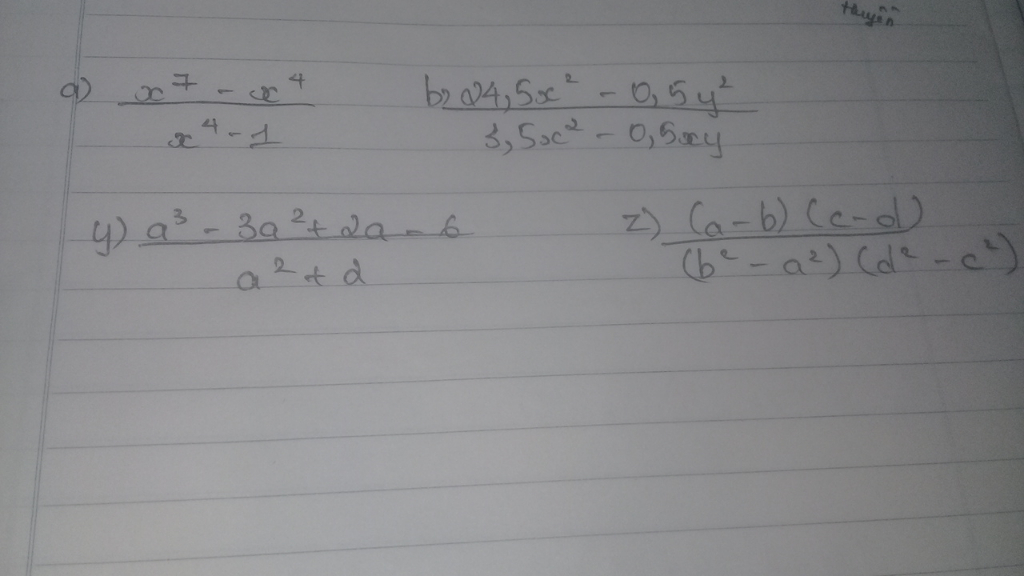 thuyền
a) (x⁷ - x⁴)/(x⁴ - 1) b) (24,5x² - 0,5y²)/(3,5x² - 0,5xy)
y) (a³ - 3a² + 2a - 6)/(a² + 2) z) ((a-b)(c-d))/((b² - a²)(d² - c²))